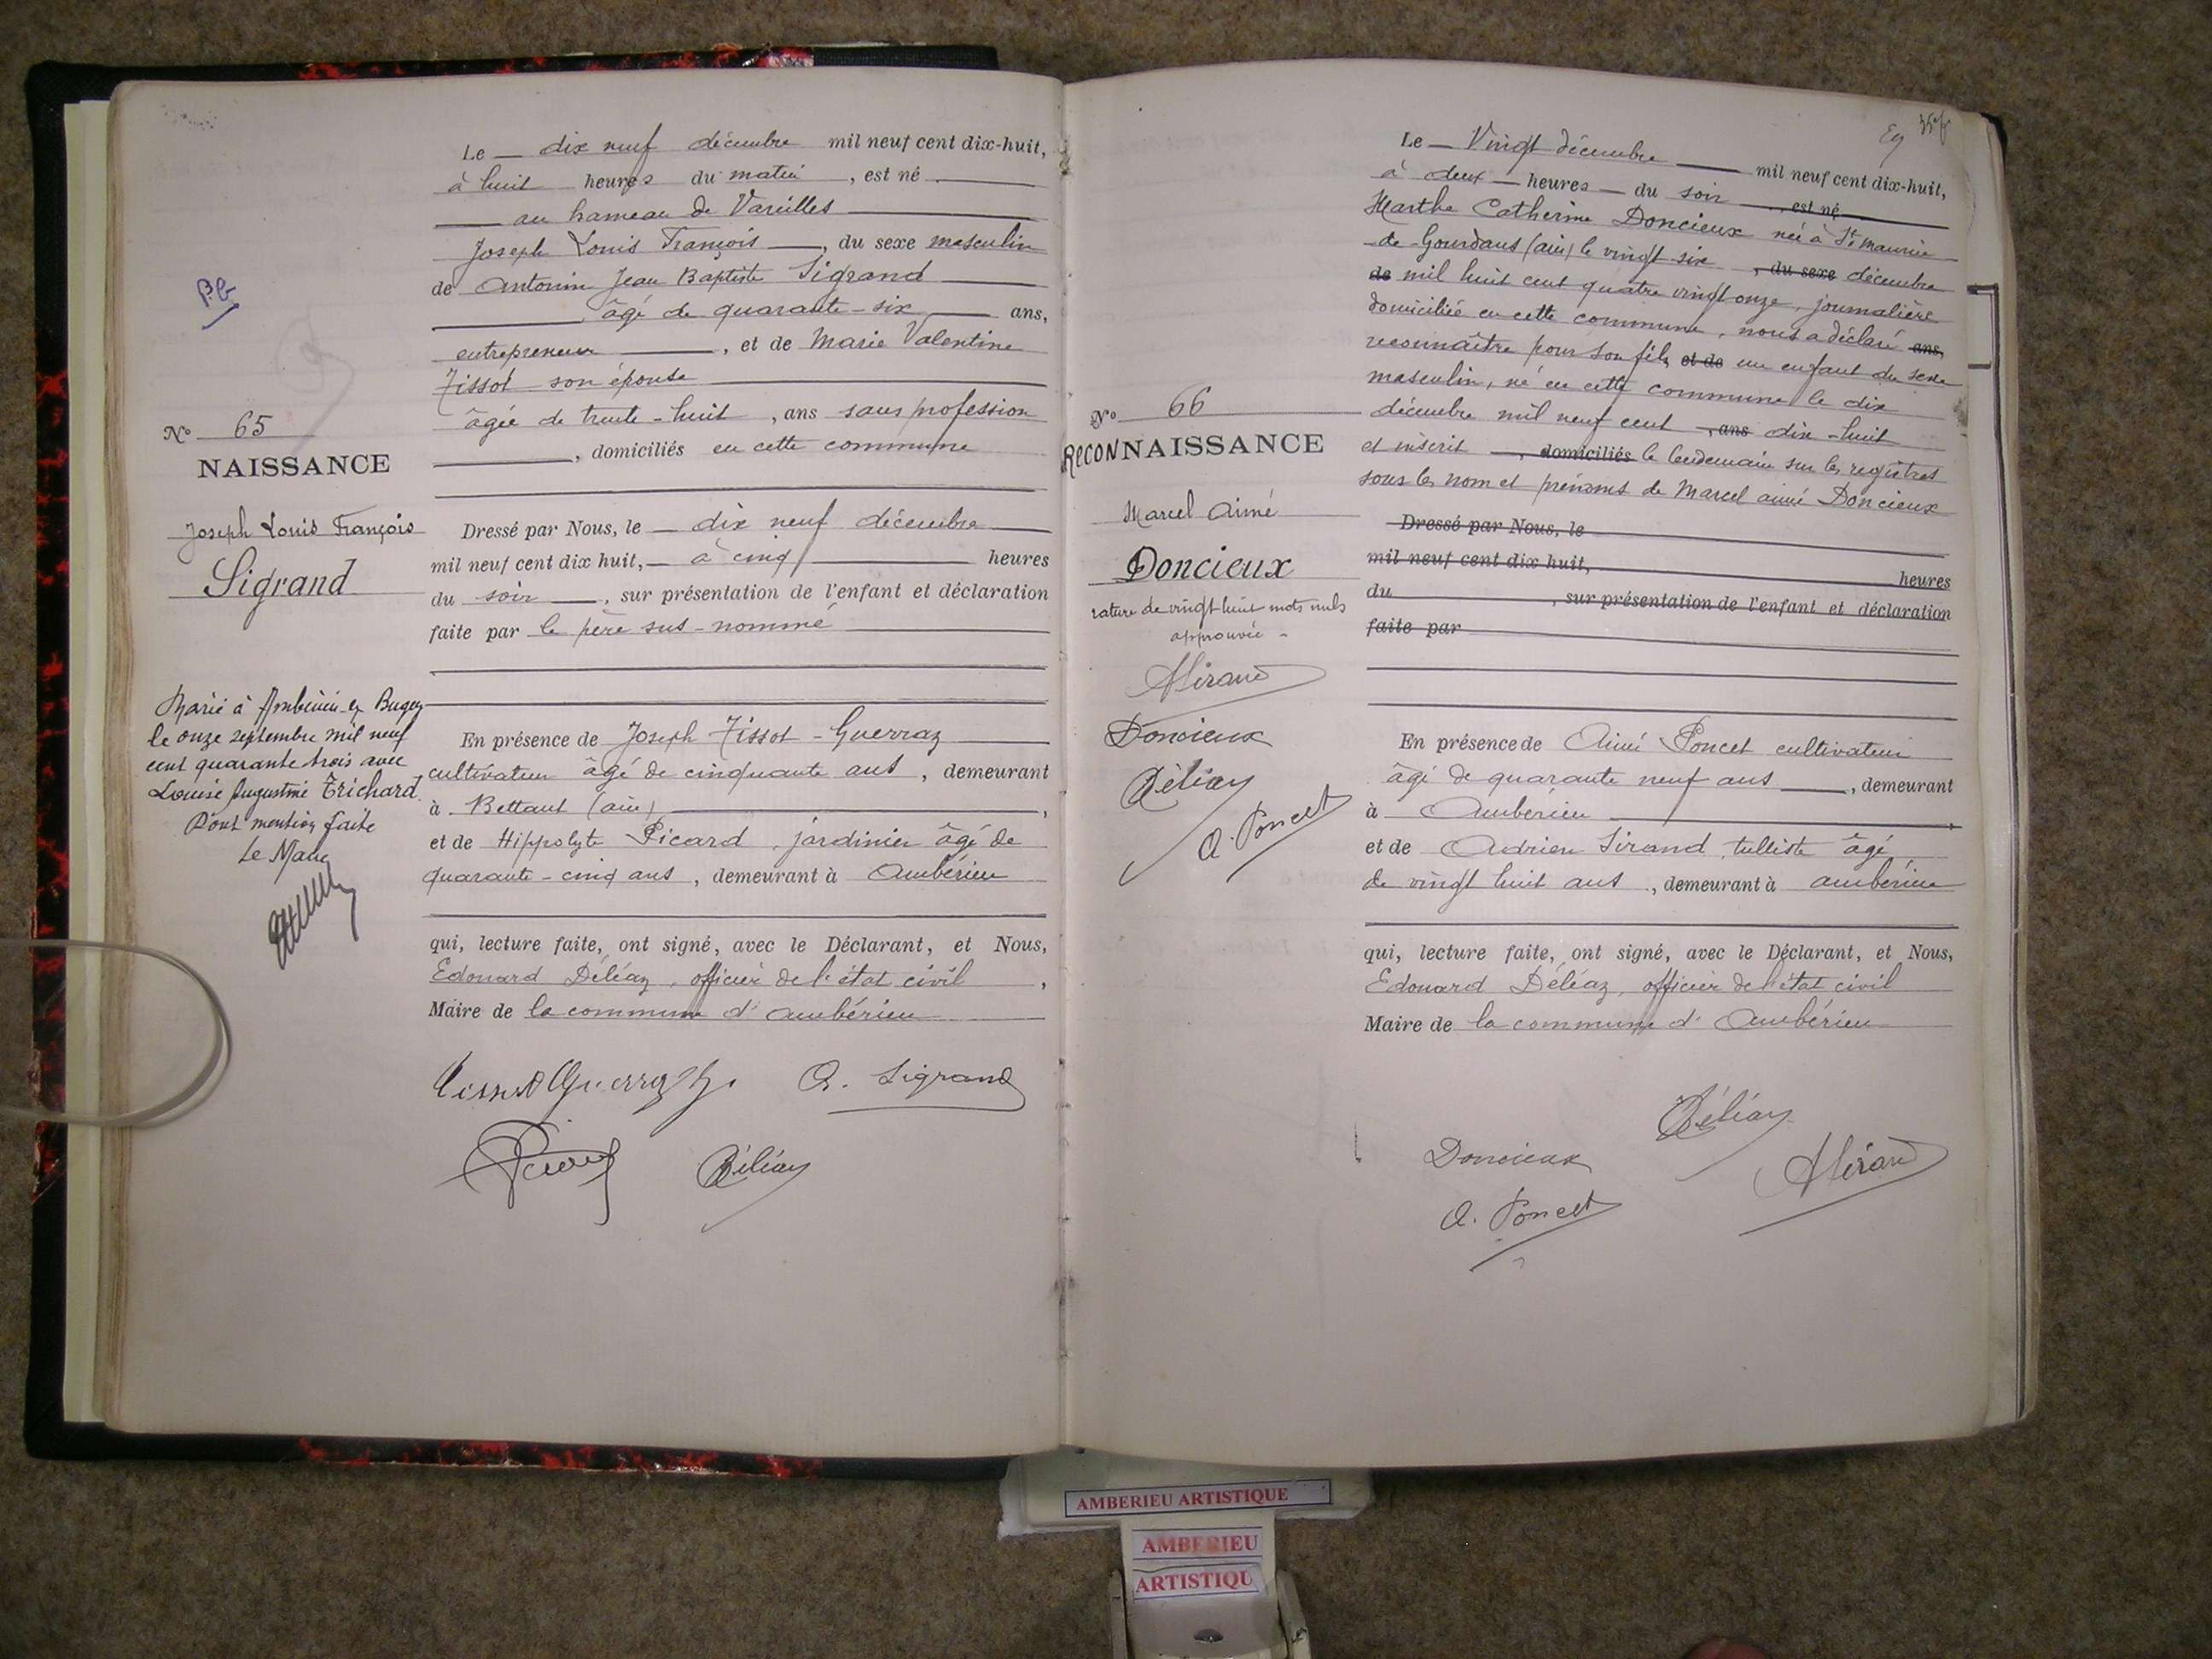 P.G
N° 65
NAISSANCE
Joseph Louis François
Sigrand
Marié à Ambérieu en Bugey
le onze septembre mil neuf
cent quarante trois avec
Louise Augustine Trichard.
Dont mention faite
Le Maire
Le dix neuf décembre mil neuf cent dix-huit,
à huit heures du matin, est né
au hameau de Vareilles
Joseph Louis François, du sexe masculin
de Antonin Jean Baptiste Sigrand
âgé de quarante-six ans,
entrepreneur, et de Marie Valentine
Tissot son épouse
âgée de trente-huit, ans sans profession
, domiciliés en cette commune
Dressé par Nous, le dix neuf décembre
mil neuf cent dix huit, à cinq heures
du soir, sur présentation de l'enfant et déclaration
faite par le père sus-nommé
En présence de Joseph Tissot-Guerraz
cultivateur âgé de cinquante ans, demeurant
à Bettant (ain),
et de Hippolyte Picard, jardinier âgé de
quarante-cinq ans, demeurant à Ambérieu
qui, lecture faite, ont signé, avec le Déclarant, et Nous,
Edouard Déléaz, officier de l'état civil,
Maire de la commune d'Ambérieu
Tissot Guerraz J. A. Sigrand
Picard Déléaz
N° 66
RECONNAISSANCE
Marcel Aimé
Doncieux
rature de vingt huit mots nuls
approuvée -
ASirand
Doncieux
Déléaz
A. Poncet
Le Vingt décembre mil neuf cent dix-huit,
à deux heures du soir, est né
Marthe Catherine Doncieux née à St Maurice
de Gourdans (ain) le vingt six, du sexe décembre
de mil huit cent quatre vingt onze, journalière
domiciliée en cette commune, nous a déclaré ans,
reconnaître pour son fils et de un enfant du sexe
masculin, né en cette commune le dix
décembre mil neuf cent, ans dix-huit
et inscrit, domiciliés le lendemain sur les registres
sous les nom et prénoms de Marcel aimé Doncieux
Dressé par Nous, le
mil neuf cent dix huit, heures
du, sur présentation de l'enfant et déclaration
faite par
En présence de Aimé Poncet cultivateur
âgé de quarante neuf ans, demeurant
à Ambérieu,
et de Adrien Sirand, tulliste âgé
de vingt huit ans, demeurant à ambérieu
qui, lecture faite, ont signé, avec le Déclarant, et Nous,
Edouard Déléaz, officier de l'état civil
Maire de la commune d'Ambérieu
Déléaz
Doncieux ASirand
A. Poncet
AMBERIEU ARTISTIQUE
AMBERIEU
ARTISTIQU